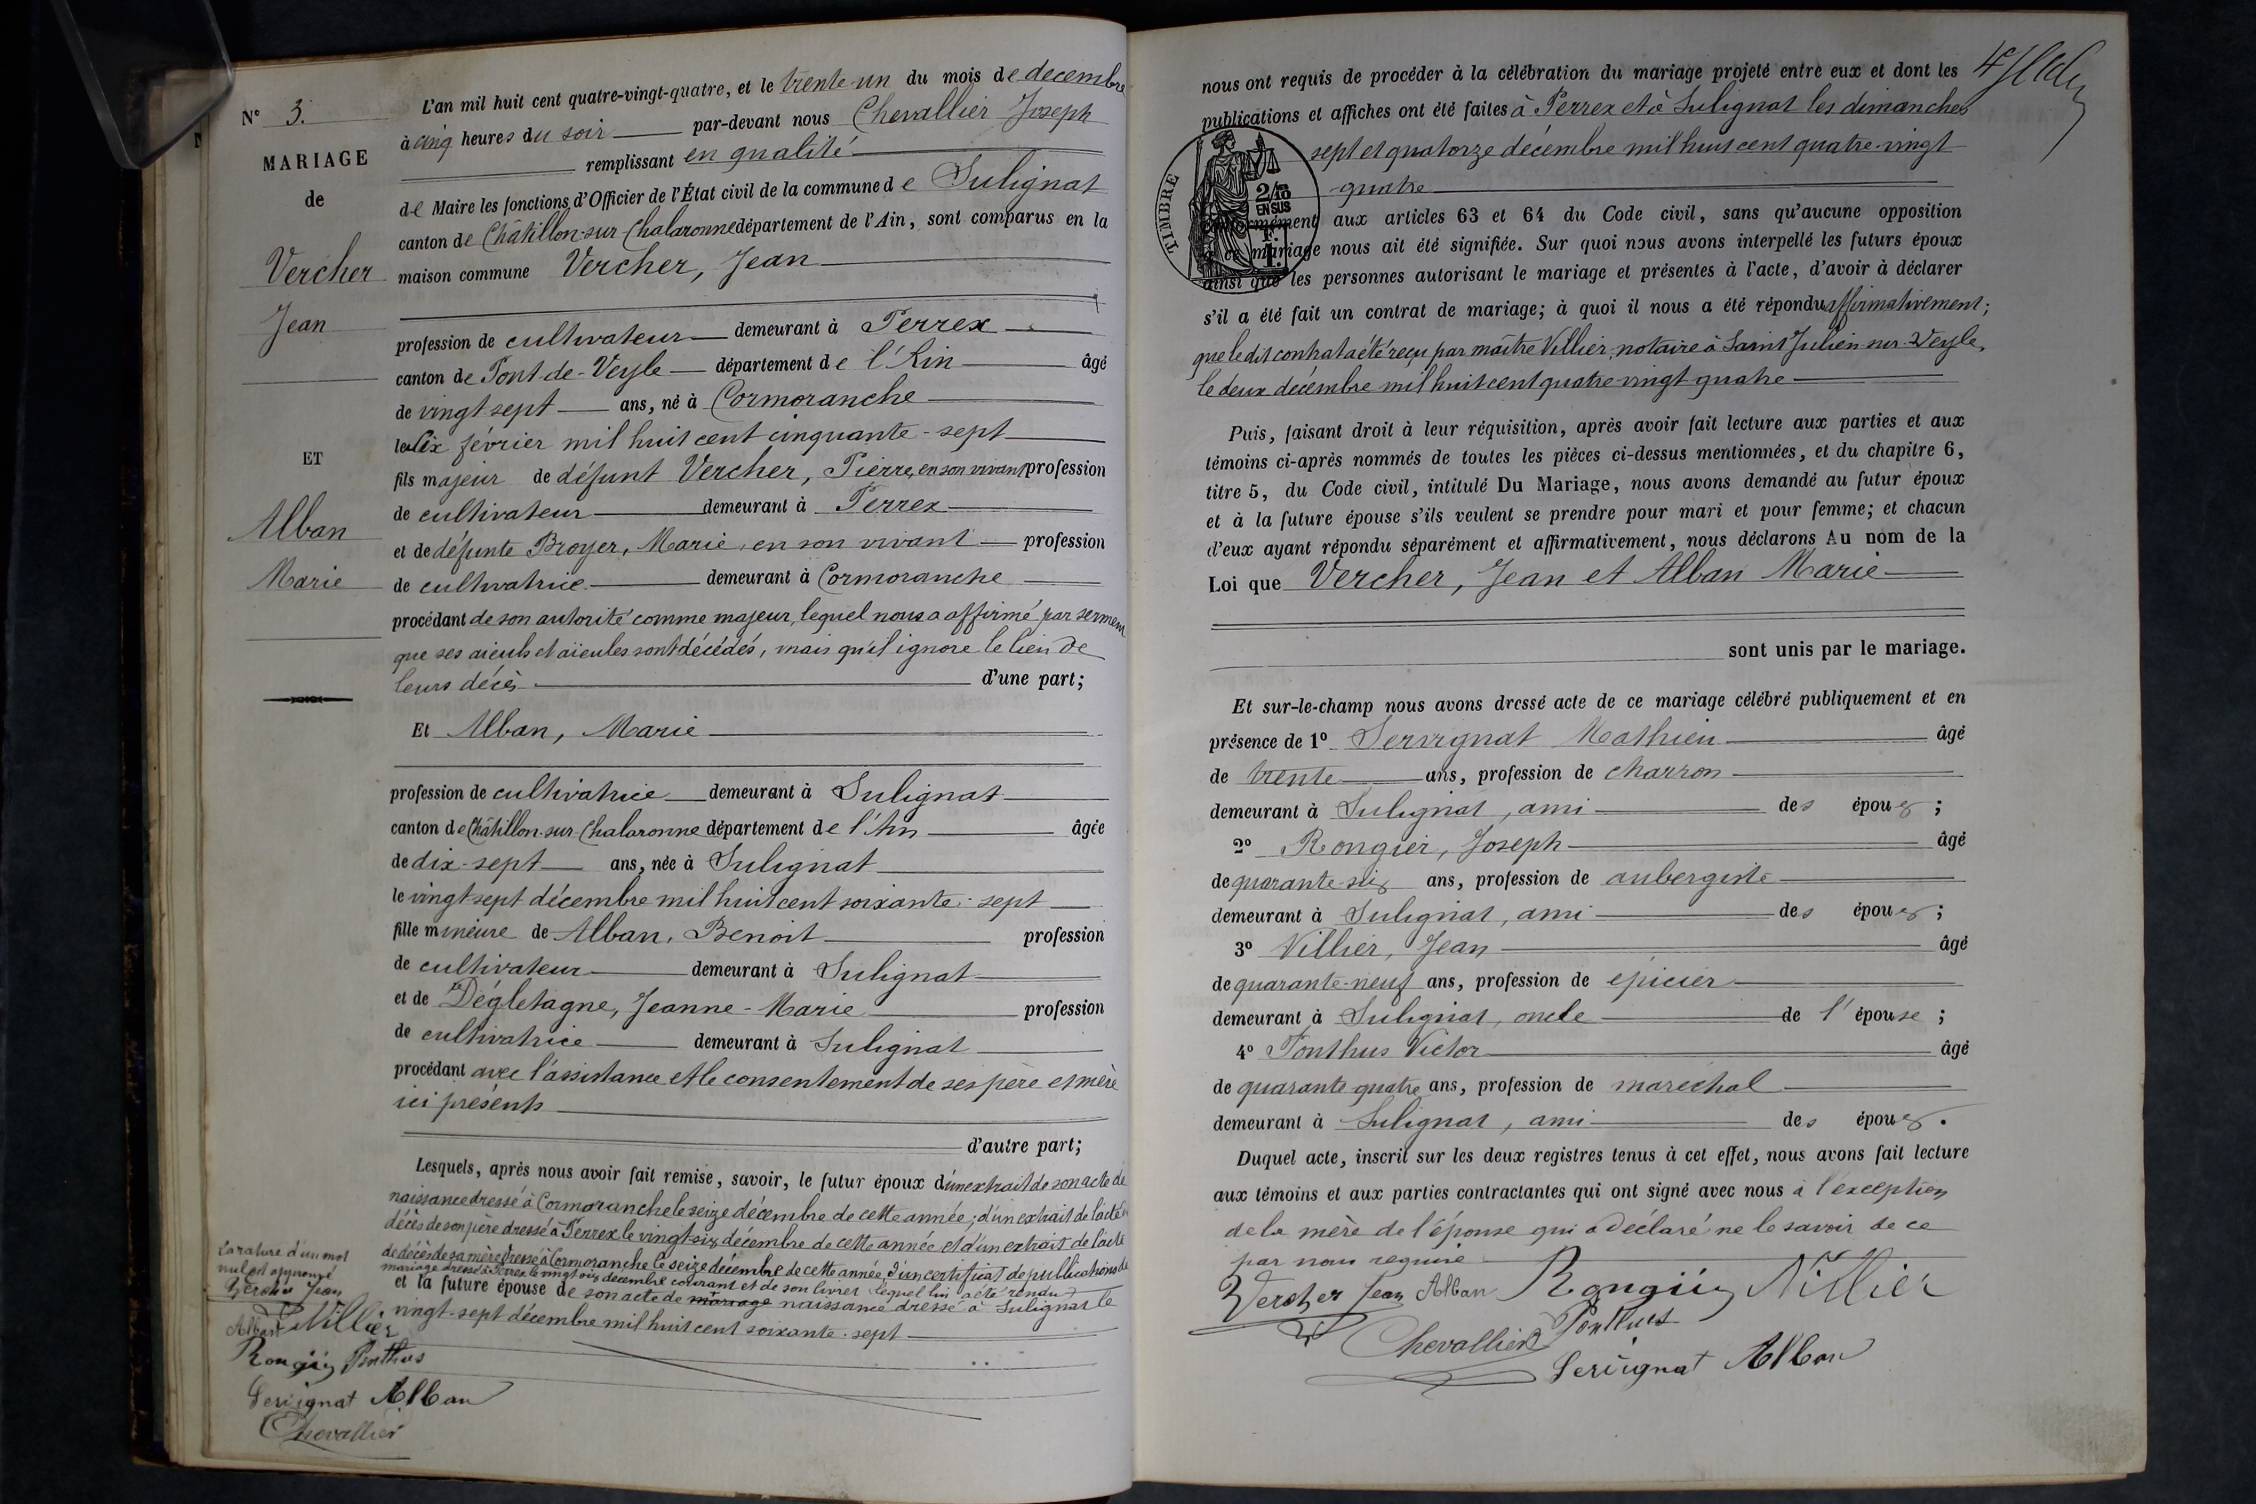 N° 3.
MARIAGE
de
Vercher
Jean
ET
Alban
Marie
L'an mil huit cent quatre-vingt-quatre, et le trente-un du mois de decembre
à cinq heures du soir par-devant nous Chevallier Joseph
remplissant en qualité
de Maire les fonctions d'Officier de l'État civil de la commune de Sulignat
canton de Châtillon-sur-Chalaronne département de l'Ain, sont comparus en la
maison commune Vercher, Jean
profession de cultivateur demeurant à Perrex
canton de Pont-de-Veyle département de l'Ain âgé
de vingt sept ans, né à Cormoranche
le dix février mil huit cent cinquante-sept
fils majeur de défunt Vercher, Pierre, en son vivant profession
de cultivateur demeurant à Perrex
et de défunte Broyer, Marie, en son vivant profession
de cultivatrice demeurant à Cormoranche
procédant de son autorité comme majeur, lequel nous a affirmé par serment
que ses aieuls et aïeules sont décédés, mais qu'il ignore le lieu de
leurs décès d'une part;
Et Alban, Marie
profession de cultivatrice demeurant à Sulignat
canton de Châtillon-sur-Chalaronne département de l'Ain âgée
de dix-sept ans, née à Sulignat
le vingt sept décembre mil huit cent soixante-sept
fille mineure de Alban, Benoit profession
de cultivateur demeurant à Sulignat
et de Dégletagne, Jeanne-Marie profession
de cultivatrice demeurant à Sulignat
procédant avec l'assistance et le consentement de ses père et mère
ici présents
d'autre part;
Lesquels, après nous avoir fait remise, savoir, le futur époux d'un extrait de son acte de
naissance dressé à Cormoranche le seize décembre de cette année; d'un extrait de l'acte de
décès de son père dressé à Perrex le vingt-six décembre de cette année et d'un extrait de l'acte
de décès de sa mère dressé à Cormoranche le seize décembre de cette année, d'un certificat de publications de
mariage dressé à Perrex le vingt six décembre courant et de son livret lequel lui a été rendu
et la future épouse de son acte de mariage naissance dressé à Sulignat le
vingt-sept décembre mil huit cent soixante-sept
La rature d'un mot
nul est approuvé
Vercher Jean
Alban Villier
Rongier Ponthus
Servignat Alban
Chevallier
nous ont requis de procéder à la célébration du mariage projeté entre eux et dont les
publications et affiches ont été faites à Perrex et à Sulignat les dimanches
sept et quatorze décembre mil huit cent quatre-vingt
quatre
TIMBRE
2/10
EN SUS
1 F.
conformément aux articles 63 et 64 du Code civil, sans qu'aucune opposition
à ce mariage nous ait été signifiée. Sur quoi nous avons interpellé les futurs époux
ainsi que les personnes autorisant le mariage et présentes à l'acte, d'avoir à déclarer
s'il a été fait un contrat de mariage; à quoi il nous a été répondu affirmativement;
que le dit contrat a été reçu par maître Villier, notaire à Saint Julien-sur-Veyle,
le deux décembre mil huit cent quatre vingt quatre
Puis, faisant droit à leur réquisition, après avoir fait lecture aux parties et aux
témoins ci-après nommés de toutes les pièces ci-dessus mentionnées, et du chapitre 6,
titre 5, du Code civil, intitulé Du Mariage, nous avons demandé au futur époux
et à la future épouse s'ils veulent se prendre pour mari et pour femme; et chacun
d'eux ayant répondu séparément et affirmativement, nous déclarons Au nom de la
Loi que Vercher, Jean et Alban Marie
sont unis par le mariage.
Et sur-le-champ nous avons dressé acte de ce mariage célébré publiquement et en
présence de 1° Servignat Mathieu âgé
de trente ans, profession de charron
demeurant à Sulignat, ami des époux;
2° Rongier, Joseph âgé
de quarante-six ans, profession de aubergiste
demeurant à Sulignat, ami des époux;
3° Villier, Jean âgé
de quarante-neuf ans, profession de épicier
demeurant à Sulignat, oncle de l'épouse;
4° Ponthus Victor âgé
de quarante-quatre ans, profession de maréchal
demeurant à Sulignat, ami des époux.
Duquel acte, inscrit sur les deux registres tenus à cet effet, nous avons fait lecture
aux témoins et aux parties contractantes qui ont signé avec nous à l'exception
de la mère de l'épouse qui a déclaré ne le savoir de ce
par nous requise
Vercher Jean Alban Rongier Villier
Chevallier Ponthus
Servignat Alban